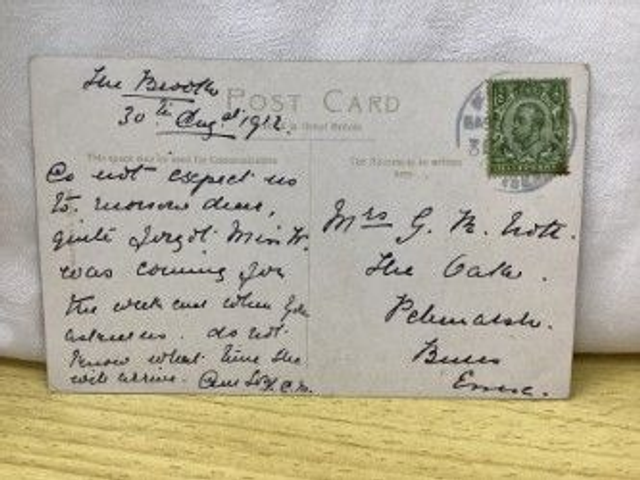 The Brook
30th Augst 1912.
POST CARD
Great Britain
This space may be used for Communication
The Address to be written
here
Do not expect us
to morrow dear,
quite forgot Miss W.
was coming for
the week end when you
asked us. do not
know what time she
will arrive.
Mrs G. R.
The Oaks.
Pebmarsh.
Bures
Essex.